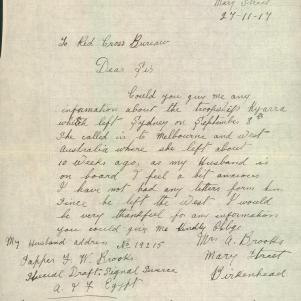 Mary Street
27-11-17
To Red Cross Bureau
Dear Sir
Could you give me any
information about the troopship Kyarra
which left Sydney on September 3rd
She called in to Melbourne and West
Australia where she left about
10 weeks ago, as my Husband is
on board I feel a bit anxious
I have not had any letters form him
since he left the West I would
be very thankful for any information
you could give me kindly Oblige
My Husband address No 19215
Mrs A. Brooks
Sapper F. W. Brooks
Mary Street
Special Draft. Signal
Birkenhead
A. I F Egypt